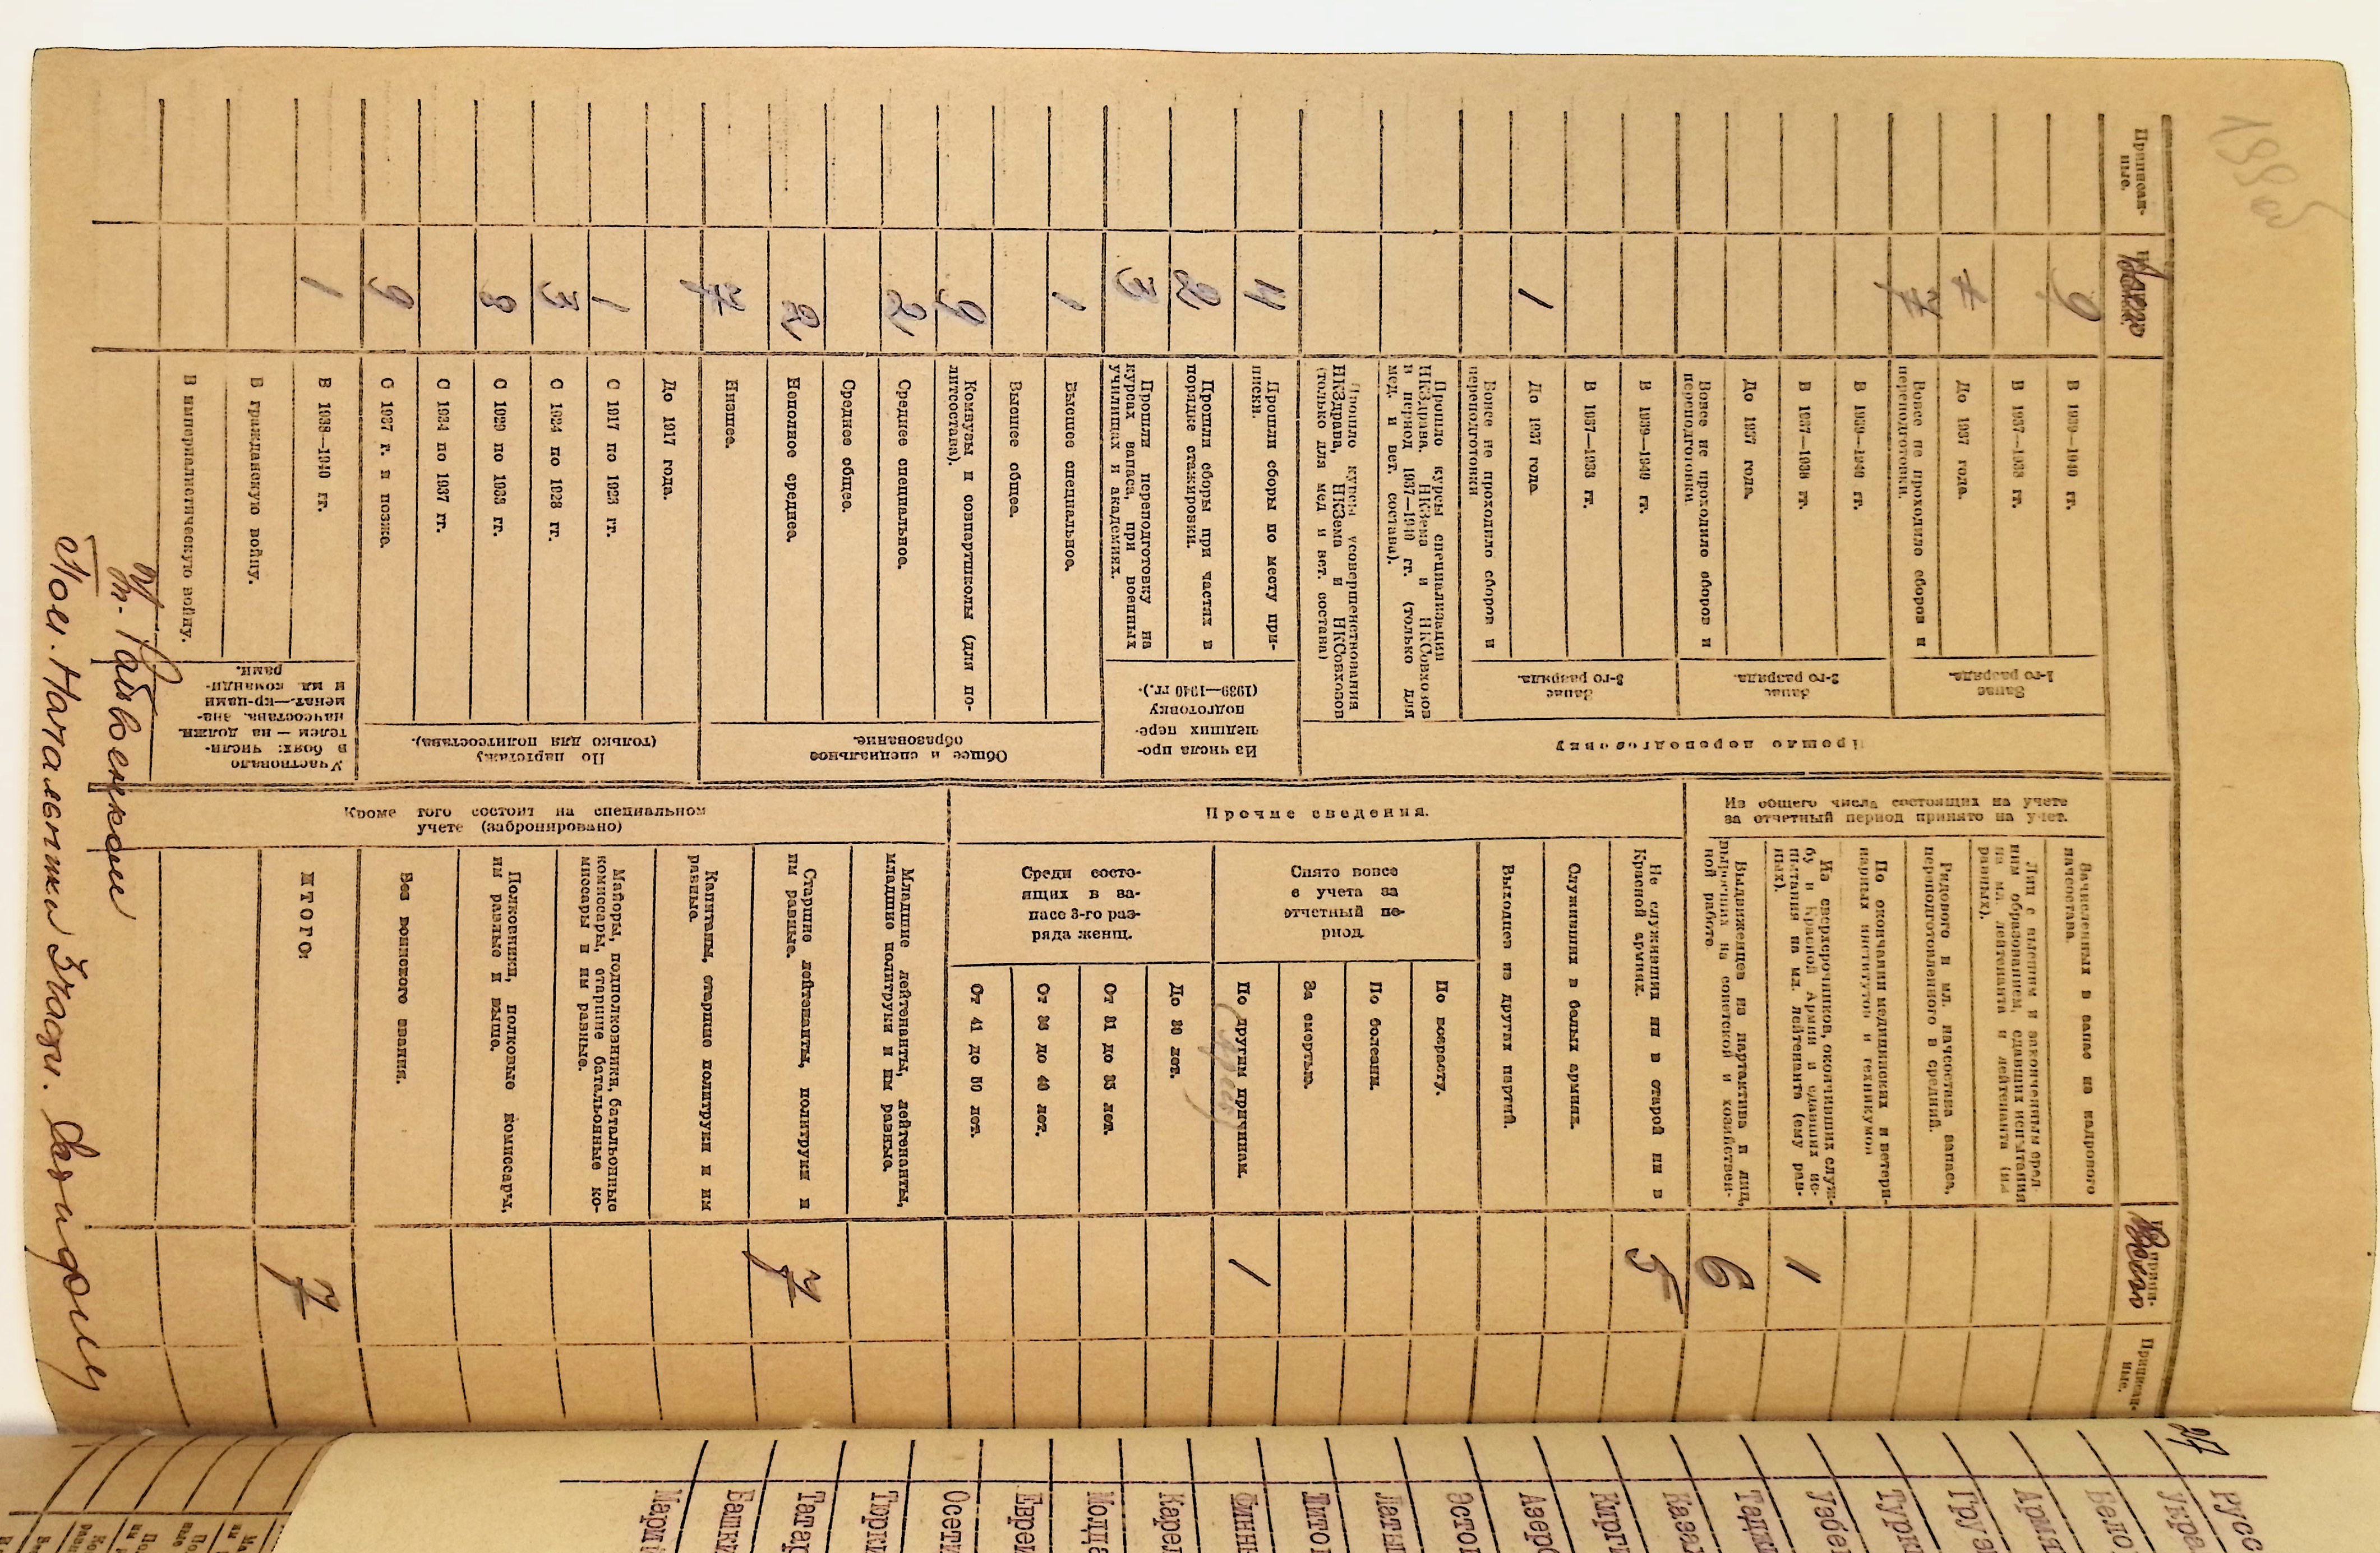 Приписан-
ные.
Всего
Прошло переподготовку
Запас
1-го разряда.
В 1939—1940 гг. 9
В 1937—1938 гг.
До 1937 года. 7
Вовсе не проходило сборов и
переподготовки. 7
Запас
2-го разряда.
В 1939—1940 гг.
В 1937—1938 гг.
До 1937 года.
Вовсе не проходило сборов и
переподготовки.
Запас
3-го разряда.
В 1939—1940 гг.
В 1937—1938 гг.
До 1937 года. 1
Вовсе не проходило сборов и
переподготовки
Прошло курсы специализации
НКЗдрава, НКЗема и НКСовхозов
в период 1937—1940 гг. (только для
мед. и вет. состава).
Прошло курсы усовершенствования
НКЗдрава, НКЗема и НКСовхозов
(только для мед и вет. состава)
Из числа про-
шедших пере-
подготовку
(1939—1940 гг.).
Прошли сборы по месту при-
писки.
Прошли сборы при частях в
порядке стажировки. 2
Прошли переподготовку на
курсах запаса, при военных
училищах и академиях. 3
Общее и специальное
образование.
Высшее специальное. 1
Высшее общее.
Комвузы и совпартшколы (для по-
литсостава). 9
Среднее специальное. 2
Среднее общее.
Неполное среднее. 2
Низшее.
По партстажу
(только для политсостава).
До 1917 года.
С 1917 по 1923 гг. 1
С 1924 по 1928 гг. 3
С 1929 по 1933 гг.
С 1934 по 1937 гг.
С 1937 г. и позже. 9
Участвовало
в боях: числи-
телем — на должн.
начсостава, зна-
менат.—кр-цами
и мл. команди-
рами.
В 1938—1940 гг. 1
В гражданскую войну.
В империалистическую войну.
Всего
Приписан-
ные.
Из общего числа состоящих на учете
за отчетный период принято на учет.
Зачисленных в запас из кадрового
начсостава.
Лиц с высшим и законченным сред-
ним образованием, сдавших испытания
на мл. лейтенанта и лейтенанта (им
равных).
Рядового и мл. начсостава запаса,
переподготовленного в средний.
По окончании медицинских и ветери-
нарных институтов и техникумов
Из сверхсрочников, окончивших служ-
бу в Красной Армии и сдавших ис-
пытания на мл. лейтенанта (ему рав-
ных). 1
Выдвиженцев из партактива и лиц,
выросших на советской и хозяйствен-
ной работе. 6
Прочие сведения.
Не служивших ни в старой ни в
Красной армиях. 5
Служивших в белых армиях.
Выходцев из других партий.
Снято вовсе
с учета за
отчетный пе-
риод.
По возрасту.
По болезни.
За смертью.
По другим причинам. 1
Среди состо-
ящих в за-
пасе 3-го раз-
ряда женщ.
До 30 лет.
От 31 до 35 лет.
От 36 до 40 лет.
От 41 до 50 лет.
Кроме того состоит на специальном
учете (забронировано)
Младшие лейтенанты, лейтенанты,
младшие политруки и им равные.
Старшие лейтенанты, политруки и
им равные. 7
Капитаны, старшие политруки и им
равные.
Майоры, подполковники, батальонные
комиссары, старшие батальонные ко-
миссары и им равные.
Полковники, полковые комиссары,
им равные и выше.
Без воинского звания.
ИТОГО: 7
27
Русс
Укра
Бело
Арми
Грузи
Турк
Узбе
Таджи
Казах
Кирги
Азерб
Эстон
Латыш
Литов
Финны
Карел
Молда
Евреи
Осети
Тюрки
Татар
Башки
Марий